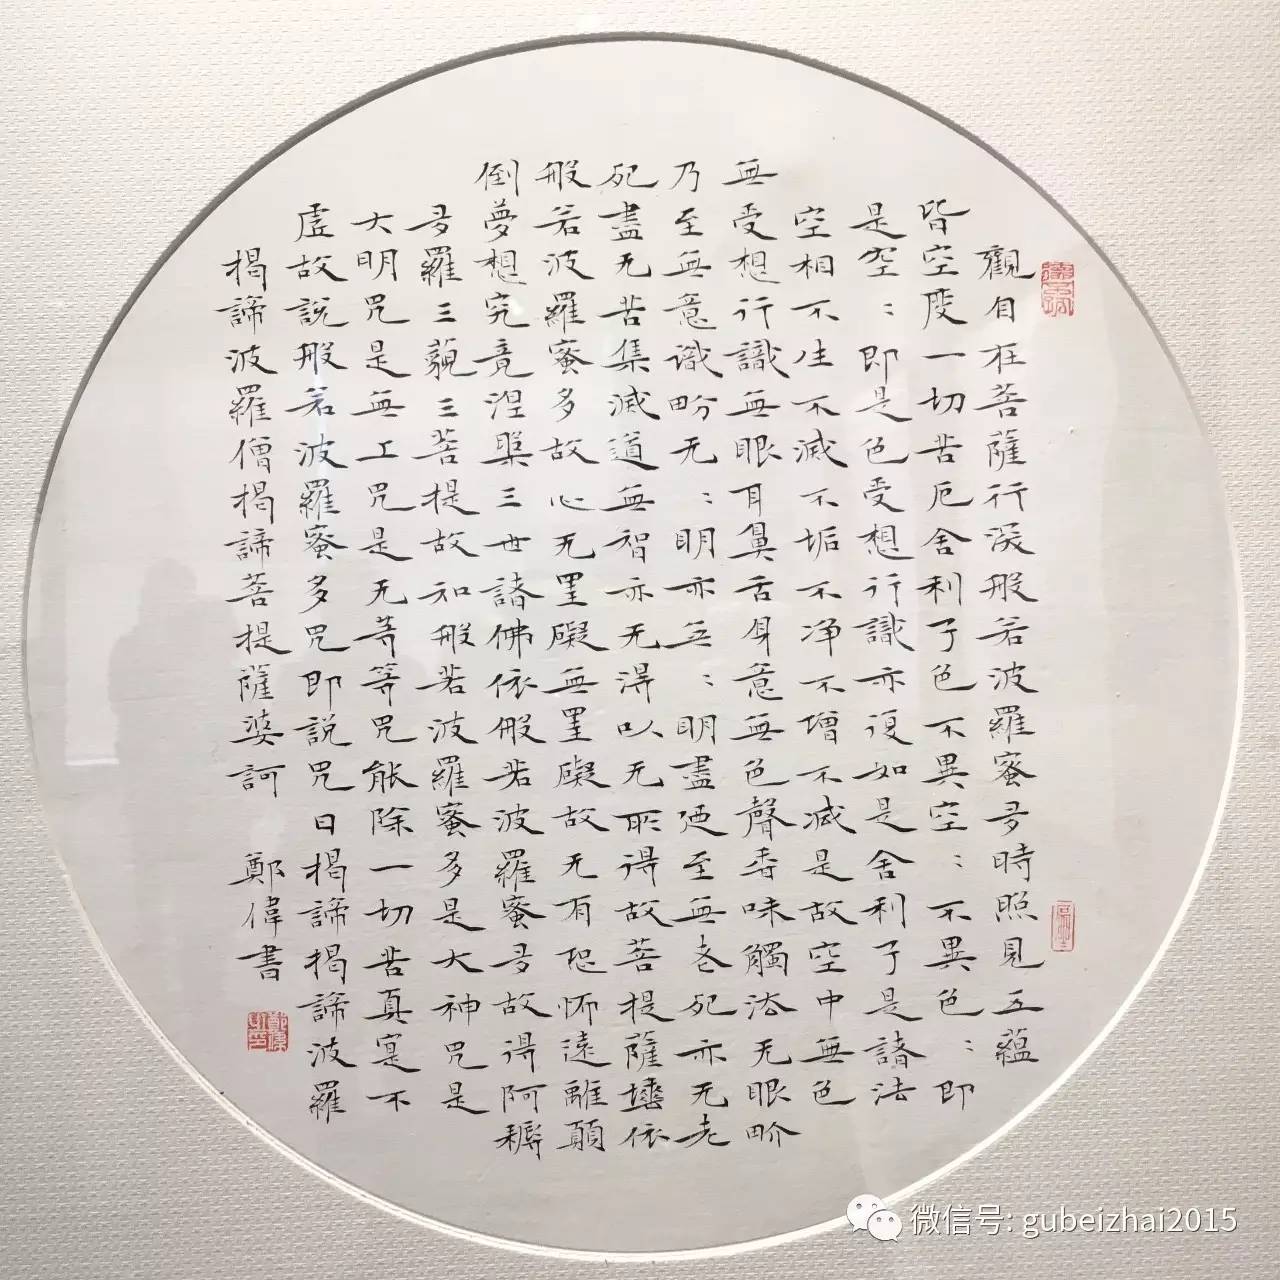 觀自在菩薩行深般若波羅蜜多時照見五蘊
皆空度一切苦厄舍利子色不異空：不異色：即
是空：即是色受想行識亦復如是舍利子是諸法
空相不生不滅不垢不净不增不减是故空中無色
無受想行識無眼耳鼻舌身意無色聲香味觸法无眼界
乃至無意識界无：明亦無：明盡乃至無老死亦无老
死盡无苦集滅道無智亦无得以无所得故菩提薩埵依
般若波羅蜜多故心无罣礙無罣礙故无有恐怖遠離顛
倒夢想究竟涅槃三世諸佛依般若波羅蜜多故得阿耨
多羅三藐三菩提故知般若波羅蜜多是大神咒是
大明咒是無上咒是无等等咒能除一切苦真實不
虛故說般若波羅蜜多咒即說咒曰揭諦揭諦波羅
揭諦波羅僧揭諦菩提薩婆訶 鄭偉書
微信号: gubeizhai2015